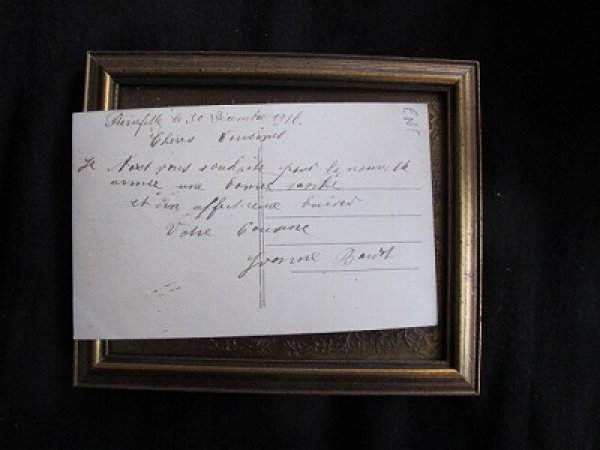 le 30 Décembre 1918
ENF
Chères Cousines
Je vous souhaite pour la nouvelle
année une bonne santé
et un affectueux baiser
Votre Cousine
Yvonne